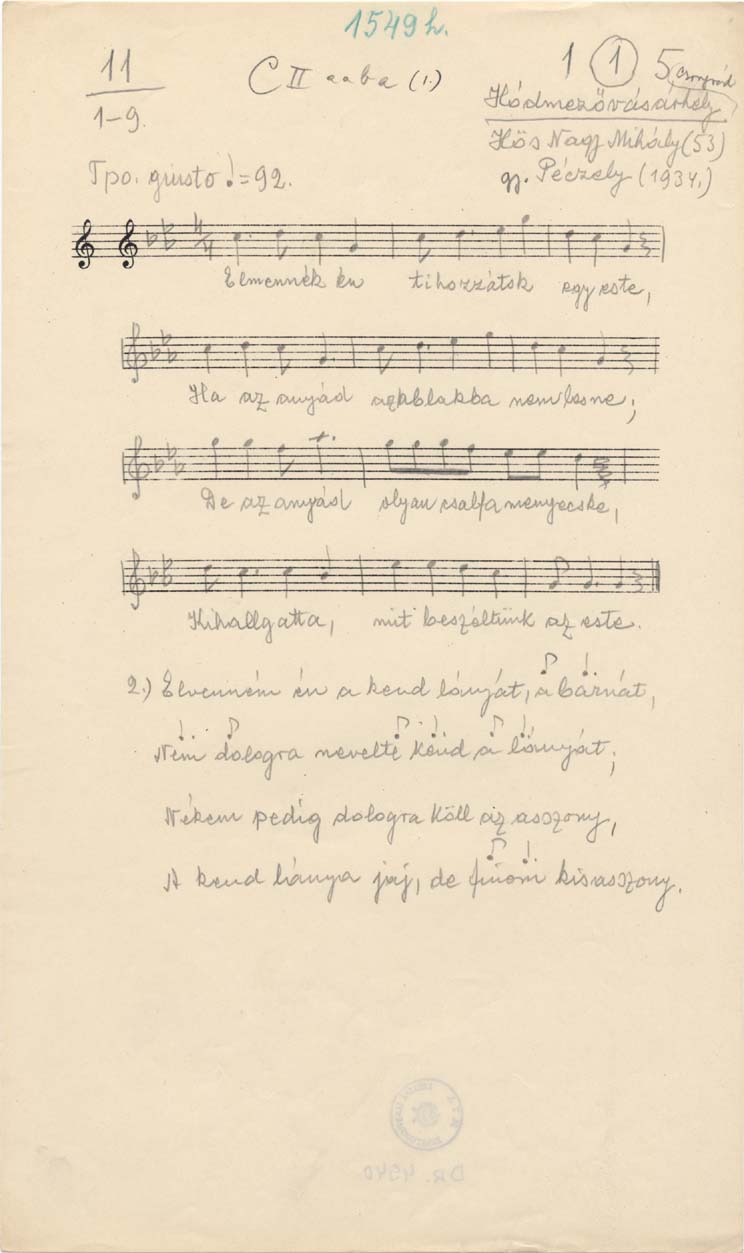 1549h.
11
1-9.
C II aaba (1.)
1 1 5 Csongrád
Hódmezővásárhely
Hős Nagy Mihály (53)
gy. Péczely (1934.)
Tpo. giusto ♩=92.
4/4
Elmennék én tihozzátok egy este,
Ha az anyád azablakba nem lesne;
De az anyád olyan csalfa menyecske,
Kihallgatta, mit beszéltünk az este.
2.) Elvenném én a kend lányát, a barnát,
Nem dologra nevelte kend a lányát;
Nékem pedig dologra köll az asszony,
A kend lánya jaj, de finom kisasszony.